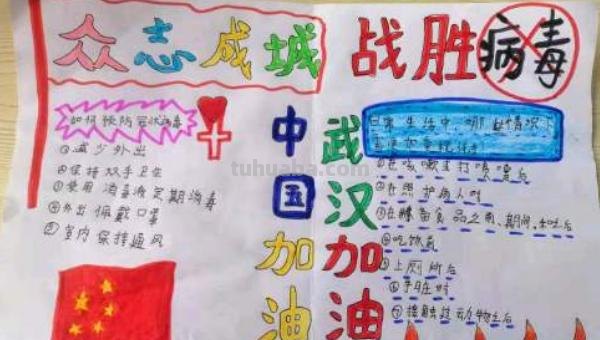 众志成城 战胜病毒
如何预防冠状病毒
①减少外出
②保持双手卫生
③使用消毒液定期消毒
④外出佩戴口罩
⑤室内保持通风
中国加油
武汉加油
日常生活中,哪些情况下
需要加强洗手
①在咳嗽或打喷嚏后
②在照护病人时
③在准备食品之前、期间、之后
④吃饭前
⑤上厕所后
⑥手脏时
⑦接触过动物之后
tuhuaba.com